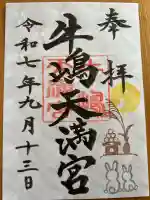 奉拝
牛嶋天満宮
令和七年九月十三日